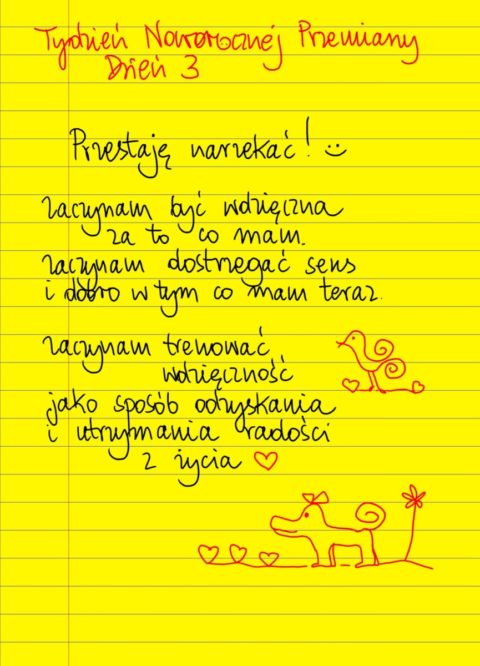 Tydzień Noworocznej Przemiany
Dzień 3
Przestaję narzekać! :)
zaczynam być wdzięczna
za to co mam.
zaczynam dostrzegać sens
i dobro w tym co mam teraz.
zaczynam trenować
wdzięczność
jako sposób odzyskania
i utrzymania radości
z życia ♡